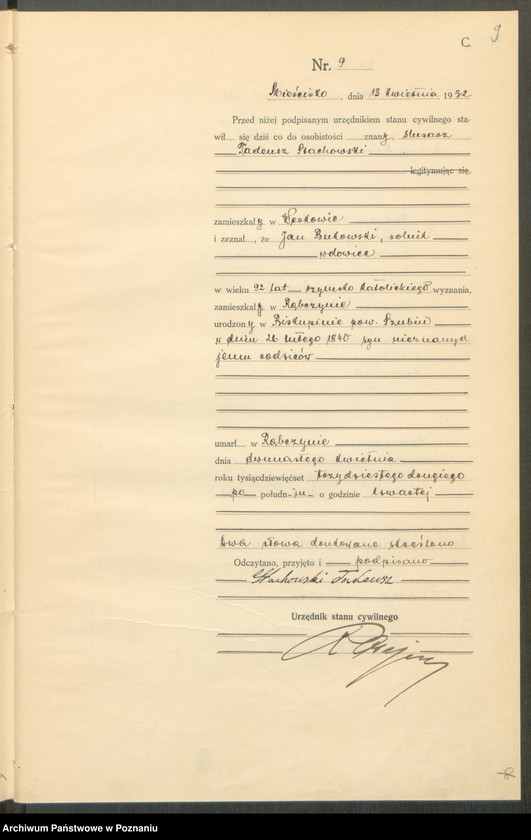 9
C.
Nr. 9
Mieścisko, dnia 13 kwietnia 1932
Przed niżej podpisanym urzędnikiem stanu cywilnego sta-
wił się dziś co do osobistości znany, ślusarz
Tadeusz Stachowski
legitymując się,
zamieszkały w
i zeznał, że Jan Bukowski, rolnik
wdowiec
w wieku 92 lat rzymsko katolickiego wyznania,
zamieszkały w Rąbczynie
urodzony w Biskupinie pow. Szubin
w dniu 26 lutego 1840 syn nieznanych
jemu rodziców
umarł w Rąbczynie
dnia dwunastego kwietnia
roku tysiącdziewięćset trzydziestego drugiego
po południu o godzinie czwartej
Dwa słowa drukowane skreślono
Odczytano, przyjęto i podpisano
Stachowski Tadeusz
Urzędnik stanu cywilnego
Archiwum Państwowe w Poznaniu